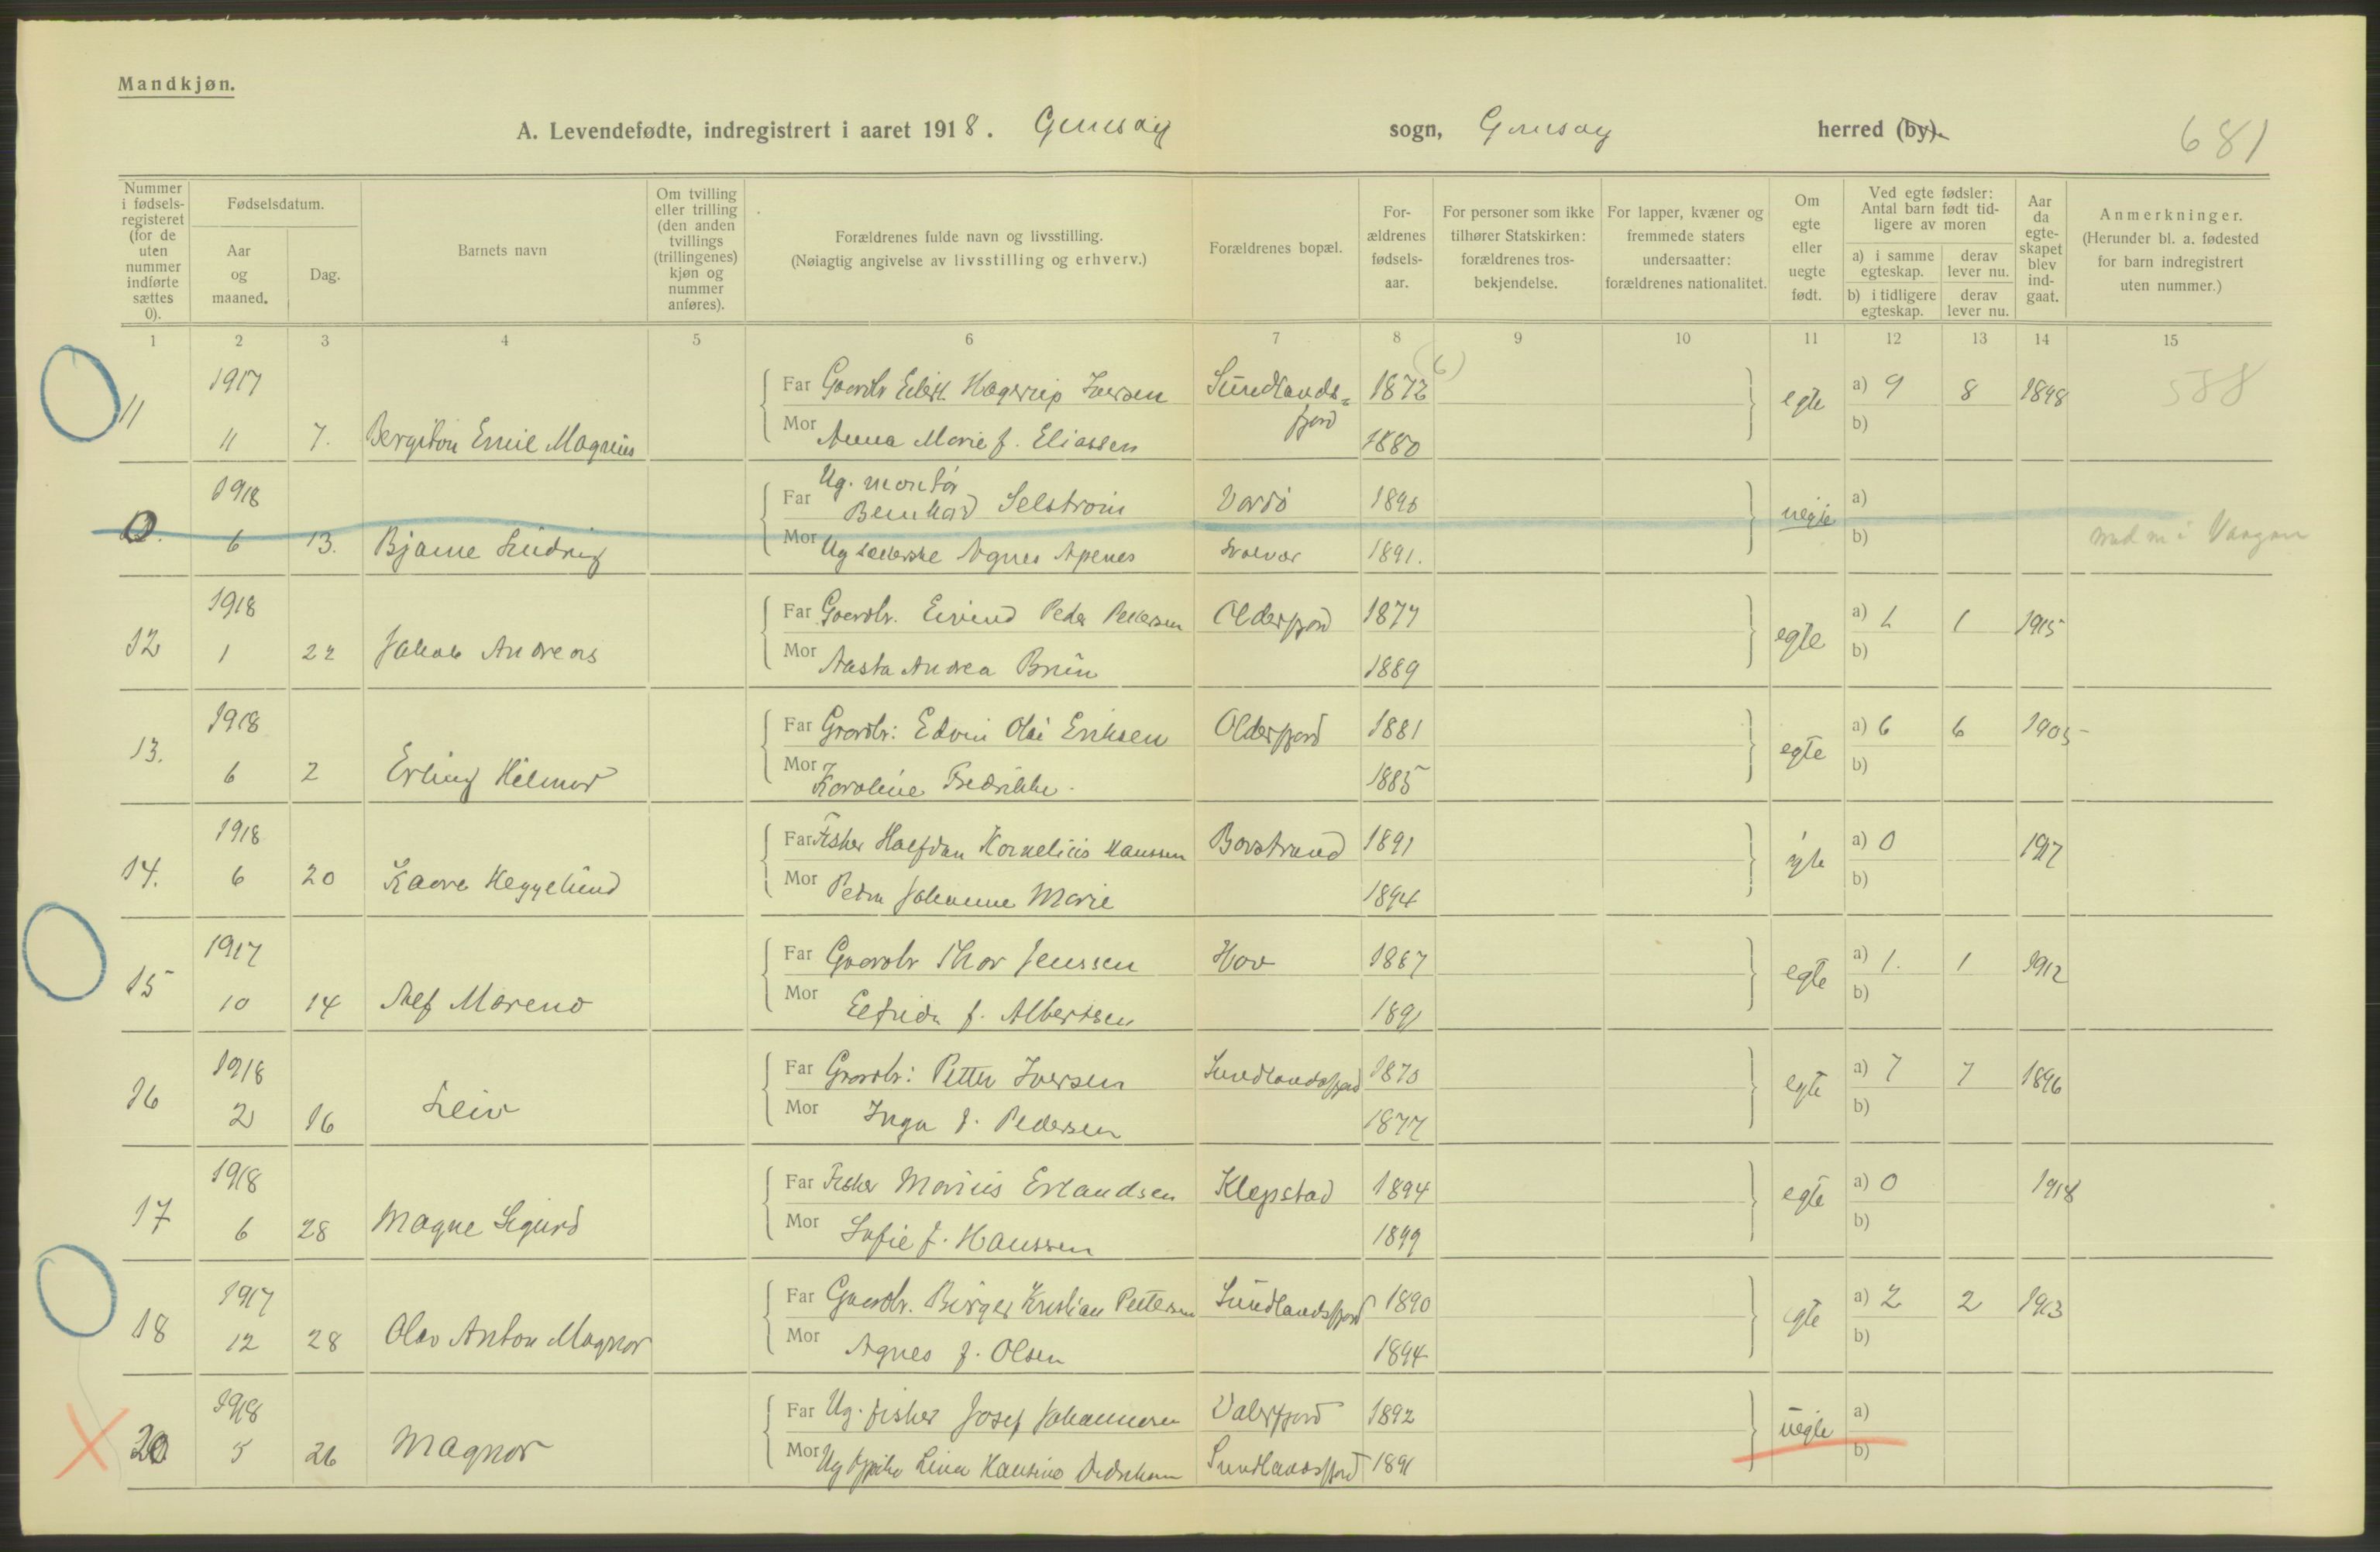 Mandkjøn.
A. Levendefødte, indregistrert i aaret 1918. Gimsøy sogn, Gimsøy herred (by).
681
Nummer i fødsels-registeret (for de uten nummer indførte sættes 0).
Fødselsdatum.
Aar og maaned.
Dag.
Barnets navn
Om tvilling eller trilling (den anden tvillings (trillingenes) kjøn og nummer anføres).
Forældrenes fulde navn og livsstilling.
(Nøiagtig angivelse av livsstilling og erhverv.)
Forældrenes bopæl.
For-ældrenes fødsels-aar.
For personer som ikke tilhører Statskirken: forældrenes tros-bekjendelse.
For lapper, kvæner og fremmede staters undersaatter: forældrenes nationalitet.
Om egte eller uegte født.
Ved egte fødsler: Antal barn født tid-ligere av moren
a) i samme egteskap. derav lever nu.
b) i tidligere egteskap. derav lever nu.
Aar da egte-skapet blev ind-gaat.
Anmerkninger.
(Herunder bl. a. fødested for barn indregistrert uten nummer.)
1 2 3 4 5 6 7 8 9 10 11 12 13 14 15
1917 Far Hagerup Iversen Sundlands= 1872 (6) egte a) 9 8 1898 588
11 11 7. Emil Magnus Mor Anna Marie f. Eliassen fjord 1880 b)
1918 Ug. montør
Far Bernhard Selstrøm Vardø uegte a)
0. 6 13. Bjarne Ludvig Mor Ug Agnes Apenes Svolvær 1891. b) Vaagan
1918 Far Gaardbr. Eivind Peder Pettersen Olderfjord 1877 egte a) 1 1915
12 1 22 Jakob Andreas Mor Aasta Andrea Bruun 1889 b)
1918 Far Gaardbr: Edvin Olai Eriksen Olderfjord 1881 egte a) 6 6 1905
13. 6 2 Erling Hilmar Mor Karoline Fredrikke. 1885 b)
1918 Far Fisker Halfdan Kornelius Hanssen Barstrand 1891 egte a) 0 1917
14. 6 20 Kaare Heggelund Mor Petra Johanne Marie 1894 b)
1917 Far Gaardbr Thor Jenssen Hov 1887 egte a) 1. 1 1912
15 10 14 Alf Mareno Mor Elfrida f. Albertsen 1891 b)
1918 Far Gaardbr: Petter Iversen Sundlandsfjord egte a) 7 7 1896
16 2 16 Leiv Mor Inga f. Pedersen 1877 b)
1918 Far Fisker Marius Erlandsen Klepstad 1894 egte a) 0 1918
17 6 28 Magne Sigurd Mor Sofie f. Hanssen 1899 b)
1917 Far Gaardbr. Birger Kristian Pettersen Sundlandsfjord 1890 egte a) 2 2 1913
18 12 28 Olav Anton Magnor Mor Agnes f. Olsen 1894 b)
1918 Far Ug. fisker Josef Johannesen Valerfjord 1892 uegte a)
20 5 26 Magnor Mor Ug Lina Hansine Sundlandsfjord 1891 b)